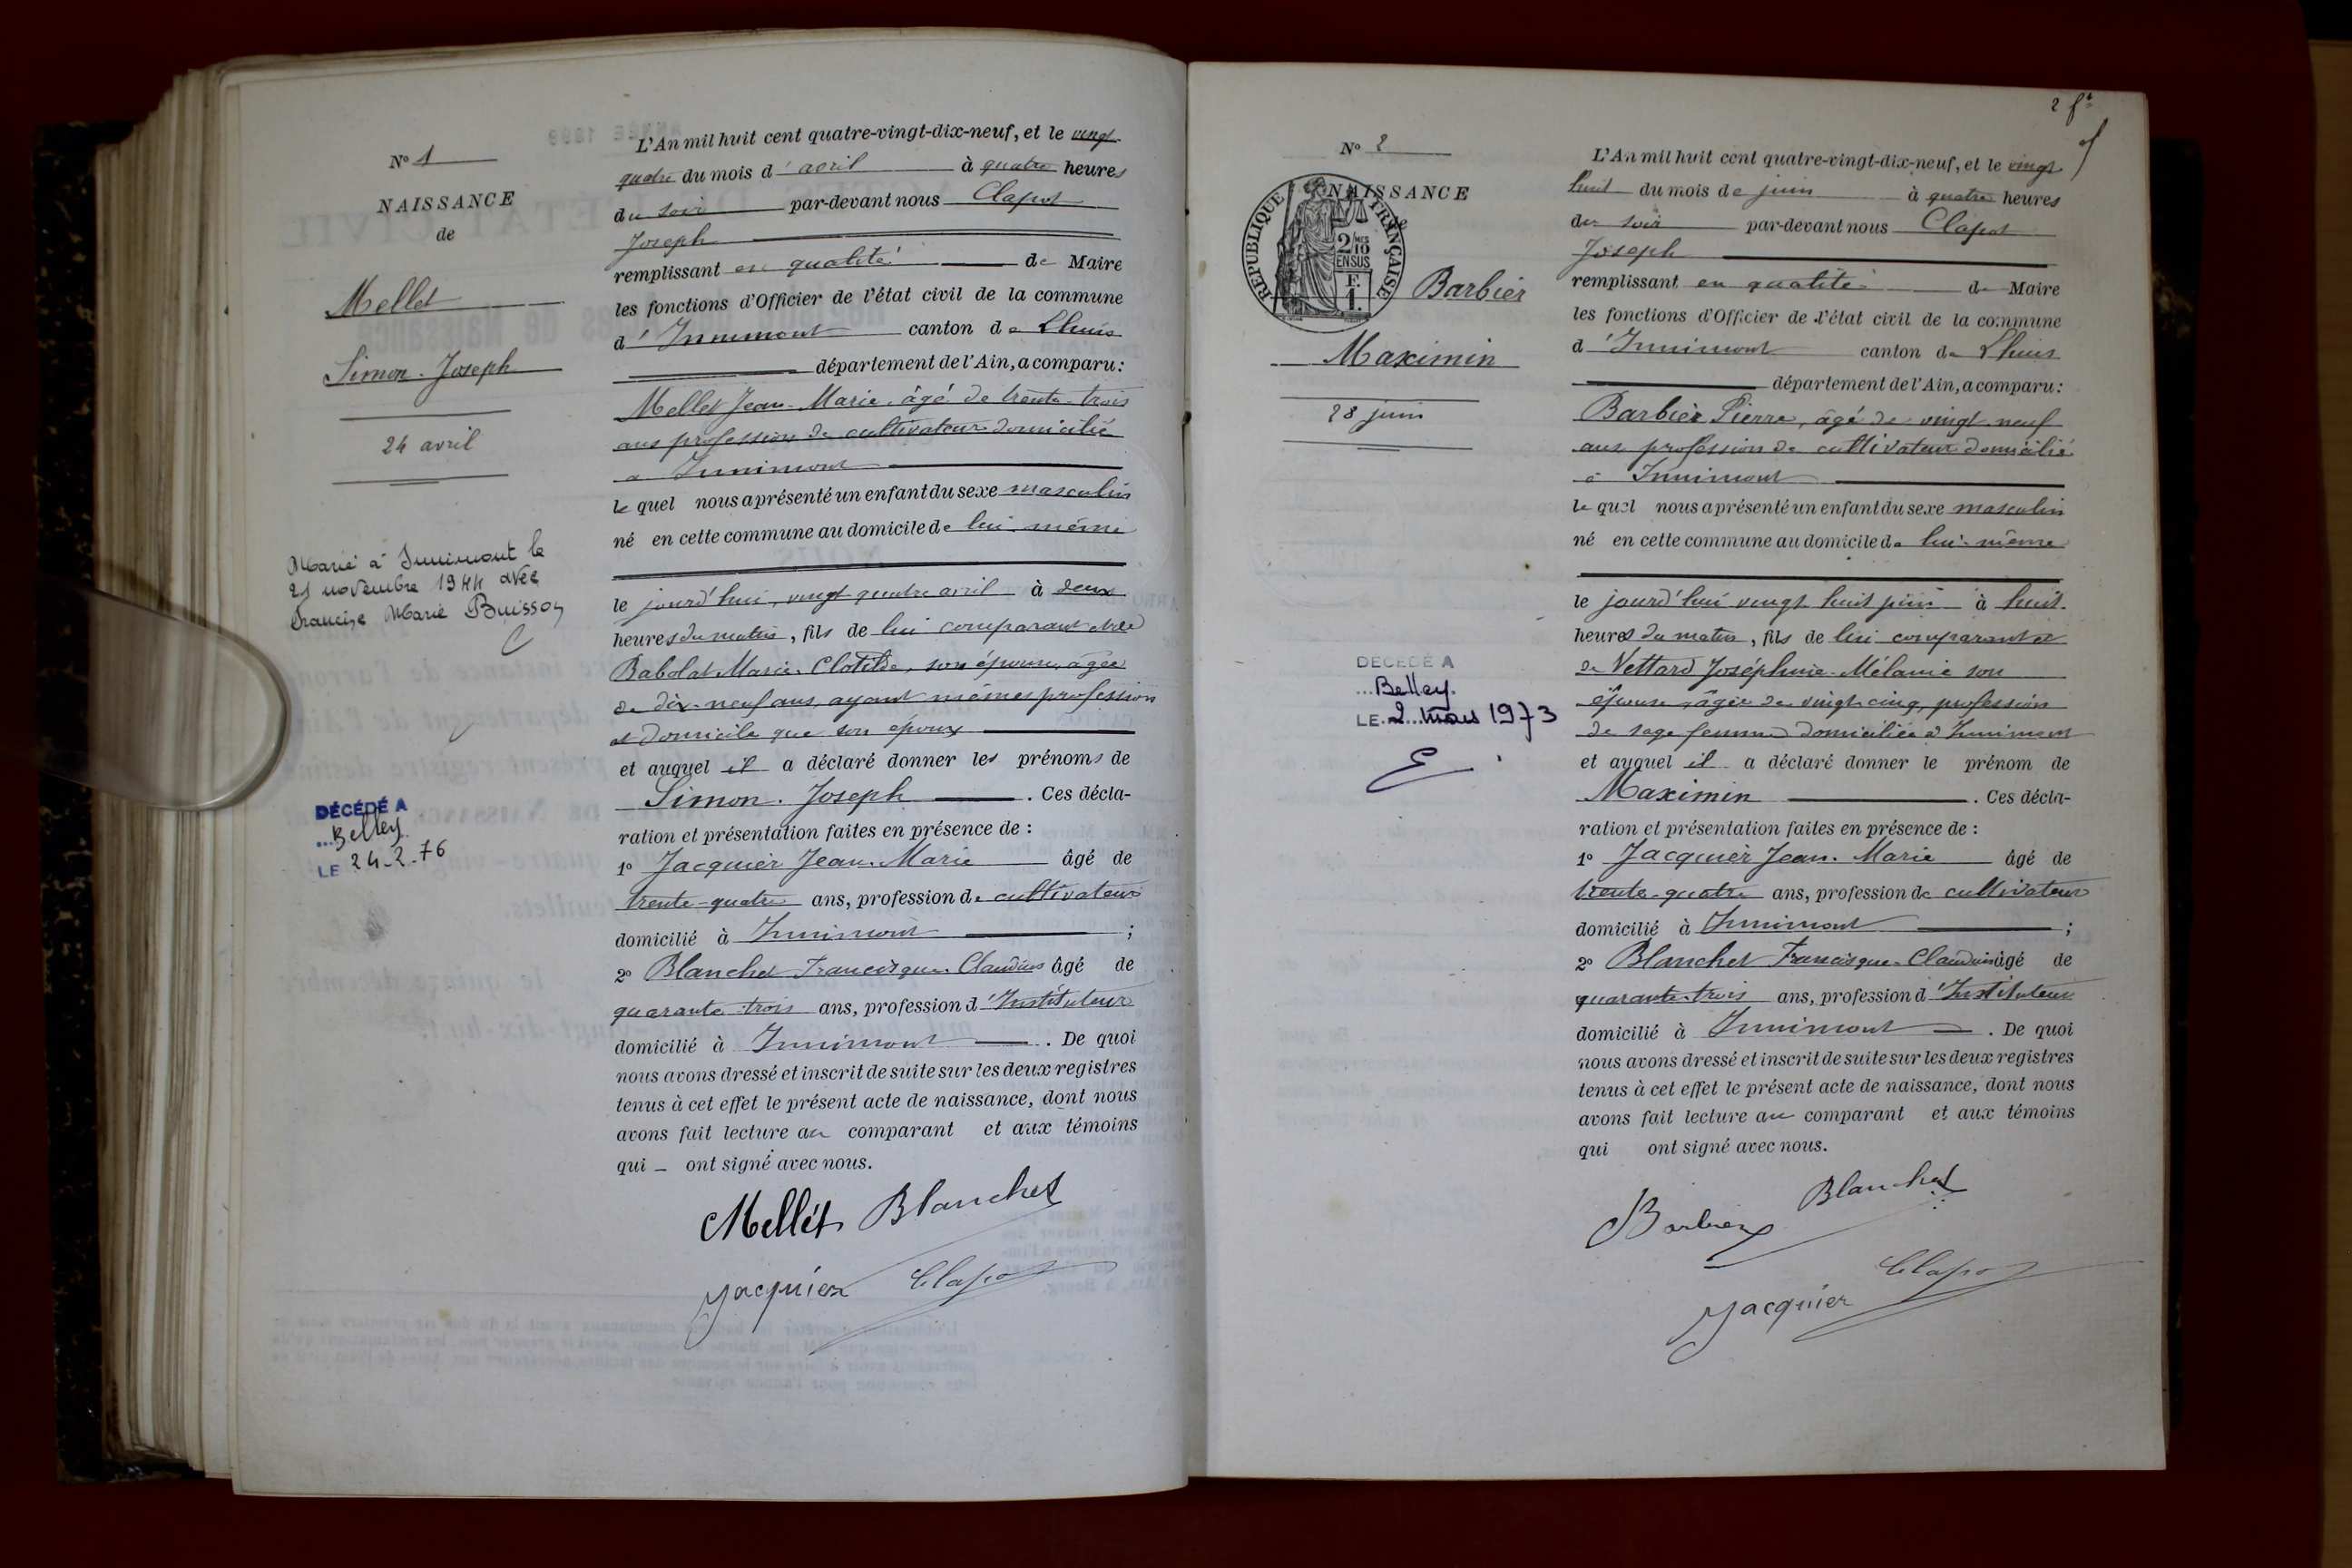 N° 1
NAISSANCE
de
Mellet
Simon-Joseph
24 avril
Marié à Innimont le
21 novembre 1944 avec
Francise Marie Buisson
DÉCÉDÉ A
Belley
LE 24-2-76
L'An mil huit cent quatre-vingt-dix-neuf, et le vingt
quatre du mois d'avril à quatre heures
du soir par-devant nous Clapot
Joseph
remplissant en qualité de Maire
les fonctions d'Officier de l'état civil de la commune
d'Innimont canton de Lhuis
département de l'Ain, a comparu:
Mellet Jean-Marie, âgé de trente-trois
ans profession de cultivateur domicilié
à Innimont
le quel nous a présenté un enfant du sexe masculin
né en cette commune au domicile de lui-même
le jourd'hui, vingt quatre avril à deux
heures du matin, fils de lui comparant et de
Babolat Marie-Clotilde, son épouse, âgée
de dix-neuf ans, ayant mêmes profession
et domicile que son époux
et auquel il a déclaré donner les prénoms de
Simon-Joseph. Ces décla-
ration et présentation faites en présence de :
1° Jacquier Jean-Marie âgé de
trente-quatre ans, profession de cultivateur
domicilié à Innimont ;
2° Blanchet Francisque-Claudius âgé de
quarante-trois ans, profession d'Instituteur
domicilié à Innimont. De quoi
nous avons dressé et inscrit de suite sur les deux registres
tenus à cet effet le présent acte de naissance, dont nous
avons fait lecture au comparant et aux témoins
qui - ont signé avec nous.
Mellét Blanchet
Jacquier Clapot
2 ft
N° 2
NAISSANCE
RÉPUBLIQUE FRANÇAISE
2/10
EN SUS
F.
1
Barbier
Maximin
28 juin
DÉCÉDÉ A
Belley.
LE 2 mars 1973
L'An mil huit cent quatre-vingt-dix-neuf, et le vingt
huit du mois de juin à quatre heures
du soir par-devant nous Clapot
Joseph
remplissant en qualité de Maire
les fonctions d'Officier de l'état civil de la commune
d'Innimont canton de Lhuis
département de l'Ain, a comparu:
Barbier Pierre, âgé de vingt-neuf
ans profession de cultivateur domicilié
à Innimont
le quel nous a présenté un enfant du sexe masculin
né en cette commune au domicile de lui-même
le jourd'hui vingt huit juin à huit
heures du matin, fils de lui comparant et
de Nettard Joséphine-Mélanie son
épouse, âgée de vingt-cinq, profession
de sage femme domiciliée à Innimont
et auquel il a déclaré donner le prénom de
Maximin. Ces décla-
ration et présentation faites en présence de :
1° Jacquier Jean-Marie âgé de
trente-quatre ans, profession de cultivateur
domicilié à Innimont ;
2° Blanchet Francisque-Claudius âgé de
quarante-trois ans, profession d'Instituteur
domicilié à Innimont. De quoi
nous avons dressé et inscrit de suite sur les deux registres
tenus à cet effet le présent acte de naissance, dont nous
avons fait lecture au comparant et aux témoins
qui ont signé avec nous.
Barbier Blanchet
Jacquier Clapot